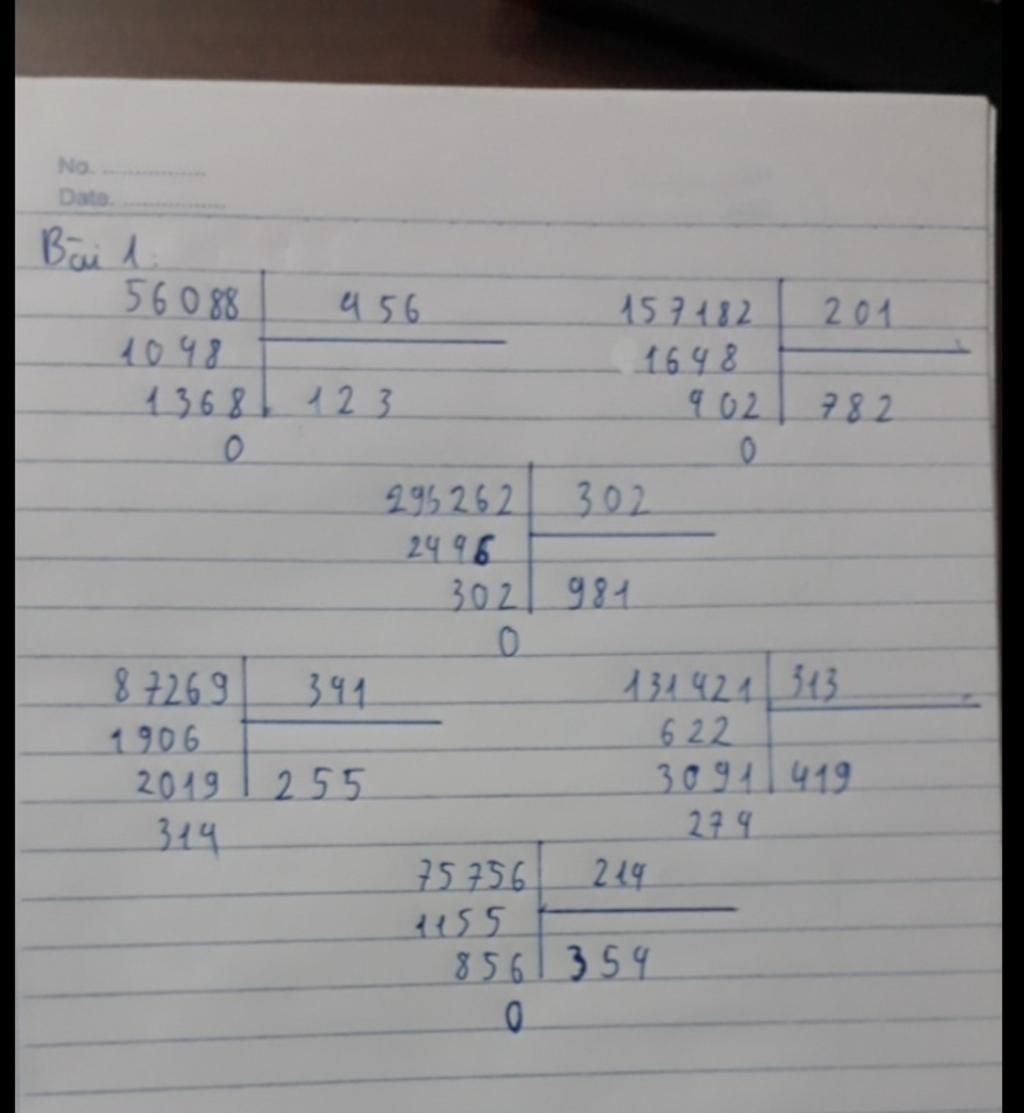 No. ...............
Date. ...............
Bài 1:
56088 456
1048
1368 123
0
157182 201
1648
402 782
0
296262 302
2446
302 981
0
87269 341
1906
2019 255
314
131421 313
622
3091 419
274
75756 214
1155
856 354
0